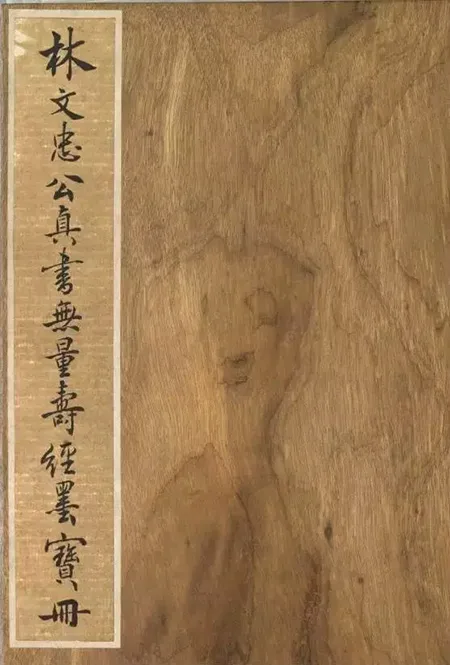 林文忠公真書無量壽經墨寶冊